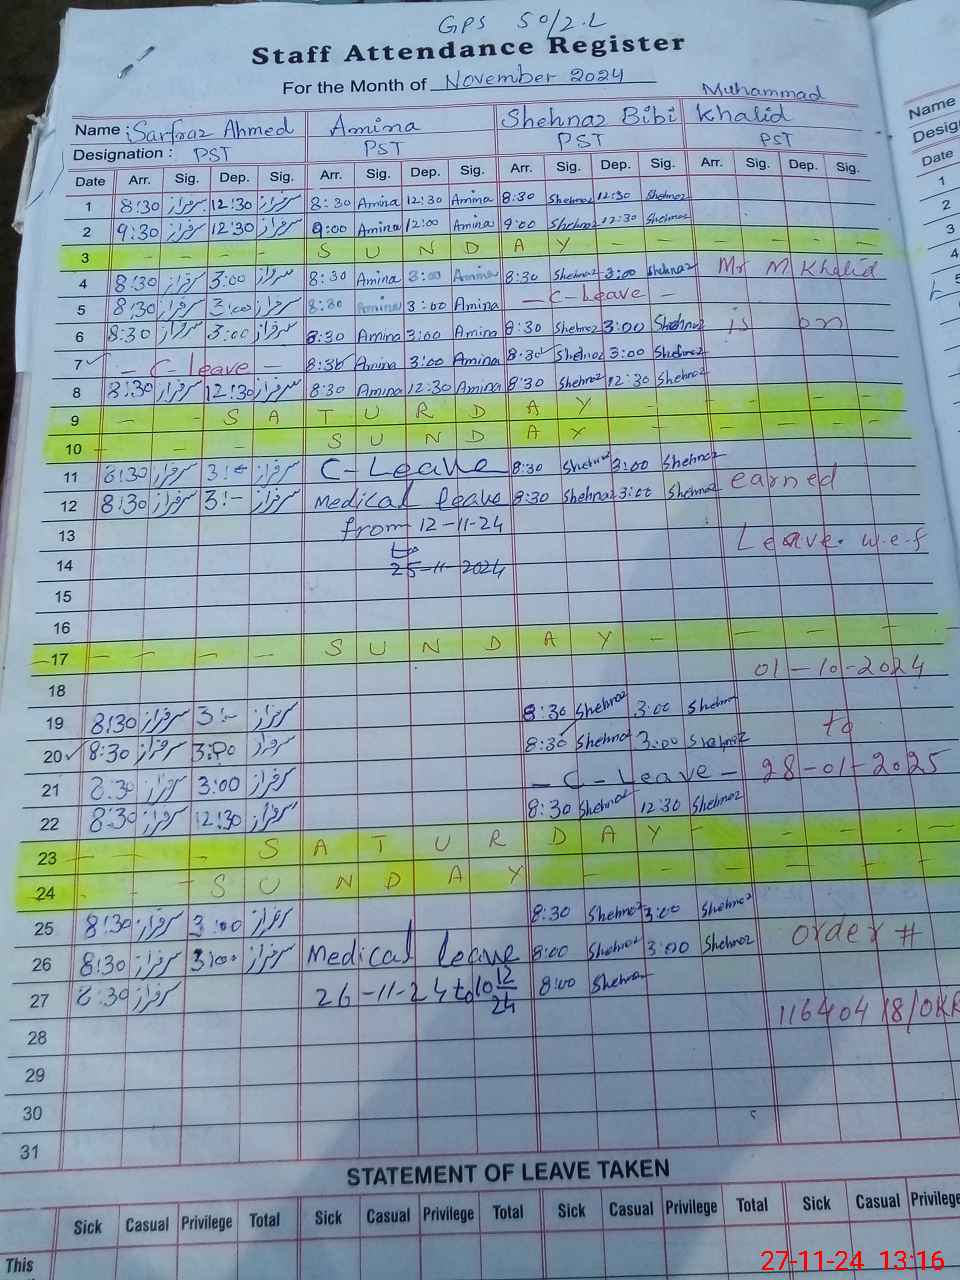 GPS 50/2.L
Staff Attendance Register
For the Month of November 2024
Muhammad
Name : Sarfraz Ahmed Amina Shehnaz Bibi Khalid
Designation : PST PST PST PST
Date Arr. Sig. Dep. Sig. Arr. Sig. Dep. Sig. Arr. Sig. Dep. Sig. Arr. Sig. Dep. Sig.
1 8:30 سرفراز 12:30 سرفراز 8:30 Amina 12:30 Amina 8:30 Shehnaz 12:30 Shehnaz
2 9:30 سرفراز 12:30 سرفراز 9:00 Amina 12:00 Amina 9:00 Shehnaz 12:30 Shehnaz
3 - - - - S U N D A Y - - - - -
4 8:30 سرفراز 3:00 سرفراز 8:30 Amina 3:00 Amina 8:30 Shehnaz 3:00 Shehnaz Mr M Khalid
5 8:30 سرفراز 3:00 سرفراز 8:30 Amina 3:00 Amina - C-Leave -
6 8:30 سرفراز 3:00 سرفراز 8:30 Amina 3:00 Amina 8:30 Shehnaz 3:00 Shehnaz is on
7 - C-Leave - 8:30 Amina 3:00 Amina 8:30 Shehnaz 3:00 Shehnaz
8 8:30 سرفراز 12:30 سرفراز 8:30 Amina 12:30 Amina 8:30 Shehnaz 12:30 Shehnaz
9 - - S A T U R D A Y - - - - -
10 - - - S U N D A Y - - - - -
11 8:30 سرفراز 3:- سرفراز C-Leave 8:30 Shehnaz 3:00 Shehnaz earned
12 8:30 سرفراز 3:- سرفراز Medical leave 8:30 Shehnaz 3:00 Shehnaz
13 from 12-11-24 Leave. w.e.f
14 to
25-11-2024
15
16
17 - - - - S U N D A Y - - - -
18 01-10-2024
19 8:30 سرفراز 3:- سرفراز 8:30 Shehnaz 3:00 Shehnaz
20 8:30 سرفراز 3:00 سرفراز 8:30 Shehnaz 3:00 Shehnaz to
21 8:30 سرفراز 3:00 سرفراز - C-Leave - 28-01-2025
22 8:30 سرفراز 12:30 سرفراز 8:30 Shehnaz 12:30 Shehnaz
23 - - - S A T U R D A Y - - - - -
24 - - - S U N D A Y - - - - - -
25 8:30 سرفراز 3:00 سرفراز 8:30 Shehnaz 3:00 Shehnaz
26 8:30 سرفراز 3:00 سرفراز Medical leave 8:00 Shehnaz 3:00 Shehnaz order #
27 8:30 سرفراز 26-11-24 to 10 12/24 8:00 Shehnaz
28 116404/8/OKR
29
30
31
STATEMENT OF LEAVE TAKEN
Sick Casual Privilege Total Sick Casual Privilege Total Sick Casual Privilege Total Sick Casual Privilege
This
27-11-24 13:16
Name
Desig
Date
1
2
3
4
5